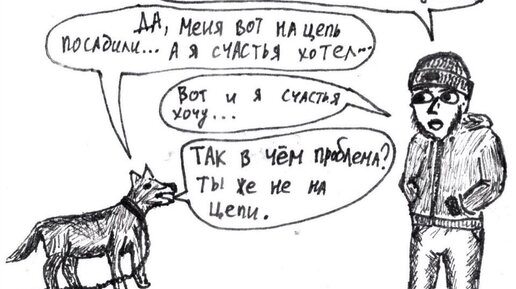 ДА, МЕНЯ ВОТ НА ЦЕПЬ
ПОСАДИЛИ... А Я СЧАСТЬЯ ХОТЕЛ...
ВОТ И Я СЧАСТЬЯ
ХОЧУ...
ТАК В ЧЁМ ПРОБЛЕМА?
ТЫ ЖЕ НЕ НА
ЦЕПИ.